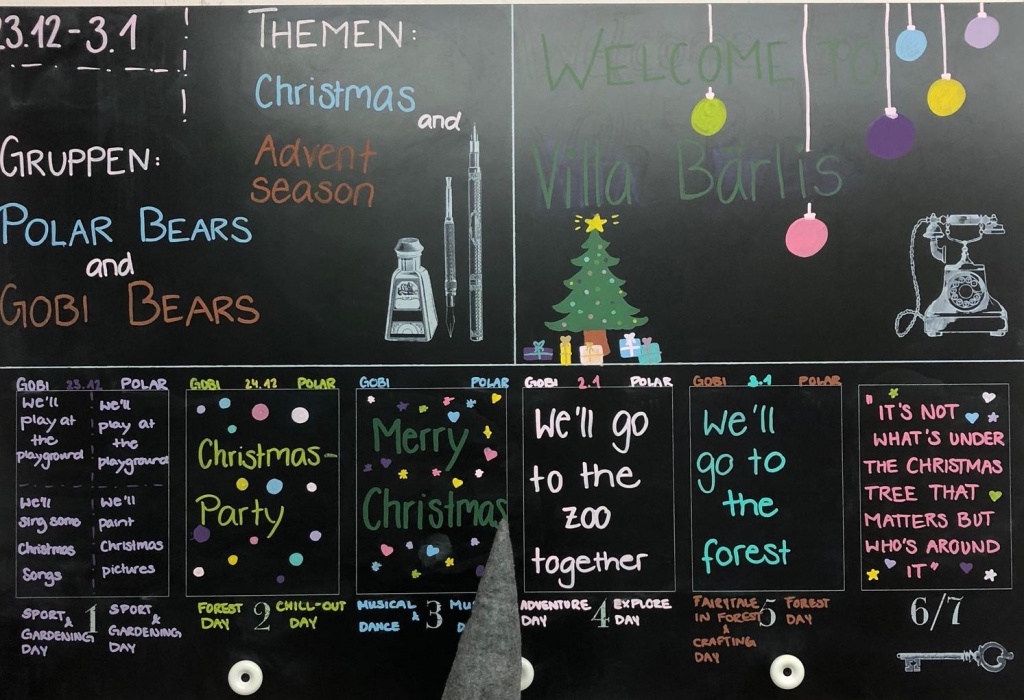 23.12-3.1
THEMEN:
Christmas
and
Advent
season
GRUPPEN:
POLAR BEARS
and
GOBI BEARS
WELCOME TO
Villa Bärlis
GOBI 23.12 POLAR
We'll
play at
the
playground
we'll
play at
the
playground
we'll
sing some
Christmas
Songs
we'll
paint
Christmas
pictures
SPORT
&
GARDENING
DAY
1
SPORT
&
GARDENING
DAY
GOBI 24.12 POLAR
Christmas-
Party
FOREST
DAY
2
CHILL-OUT
DAY
GOBI POLAR
Merry
Christmas
MUSICAL
&
DANCE
3
GOBI 2.1 POLAR
We'll go
to the
zoo
together
ADVENTURE
DAY
4
EXPLORE
DAY
GOBI 3.1 POLAR
We'll
go to
the
forest
FAIRYTALE
IN FOREST
&
CRAFTING
DAY
5
FOREST
DAY
"IT'S NOT
WHAT'S UNDER
THE CHRISTMAS
TREE THAT
MATTERS BUT
WHO'S AROUND
IT"
6/7